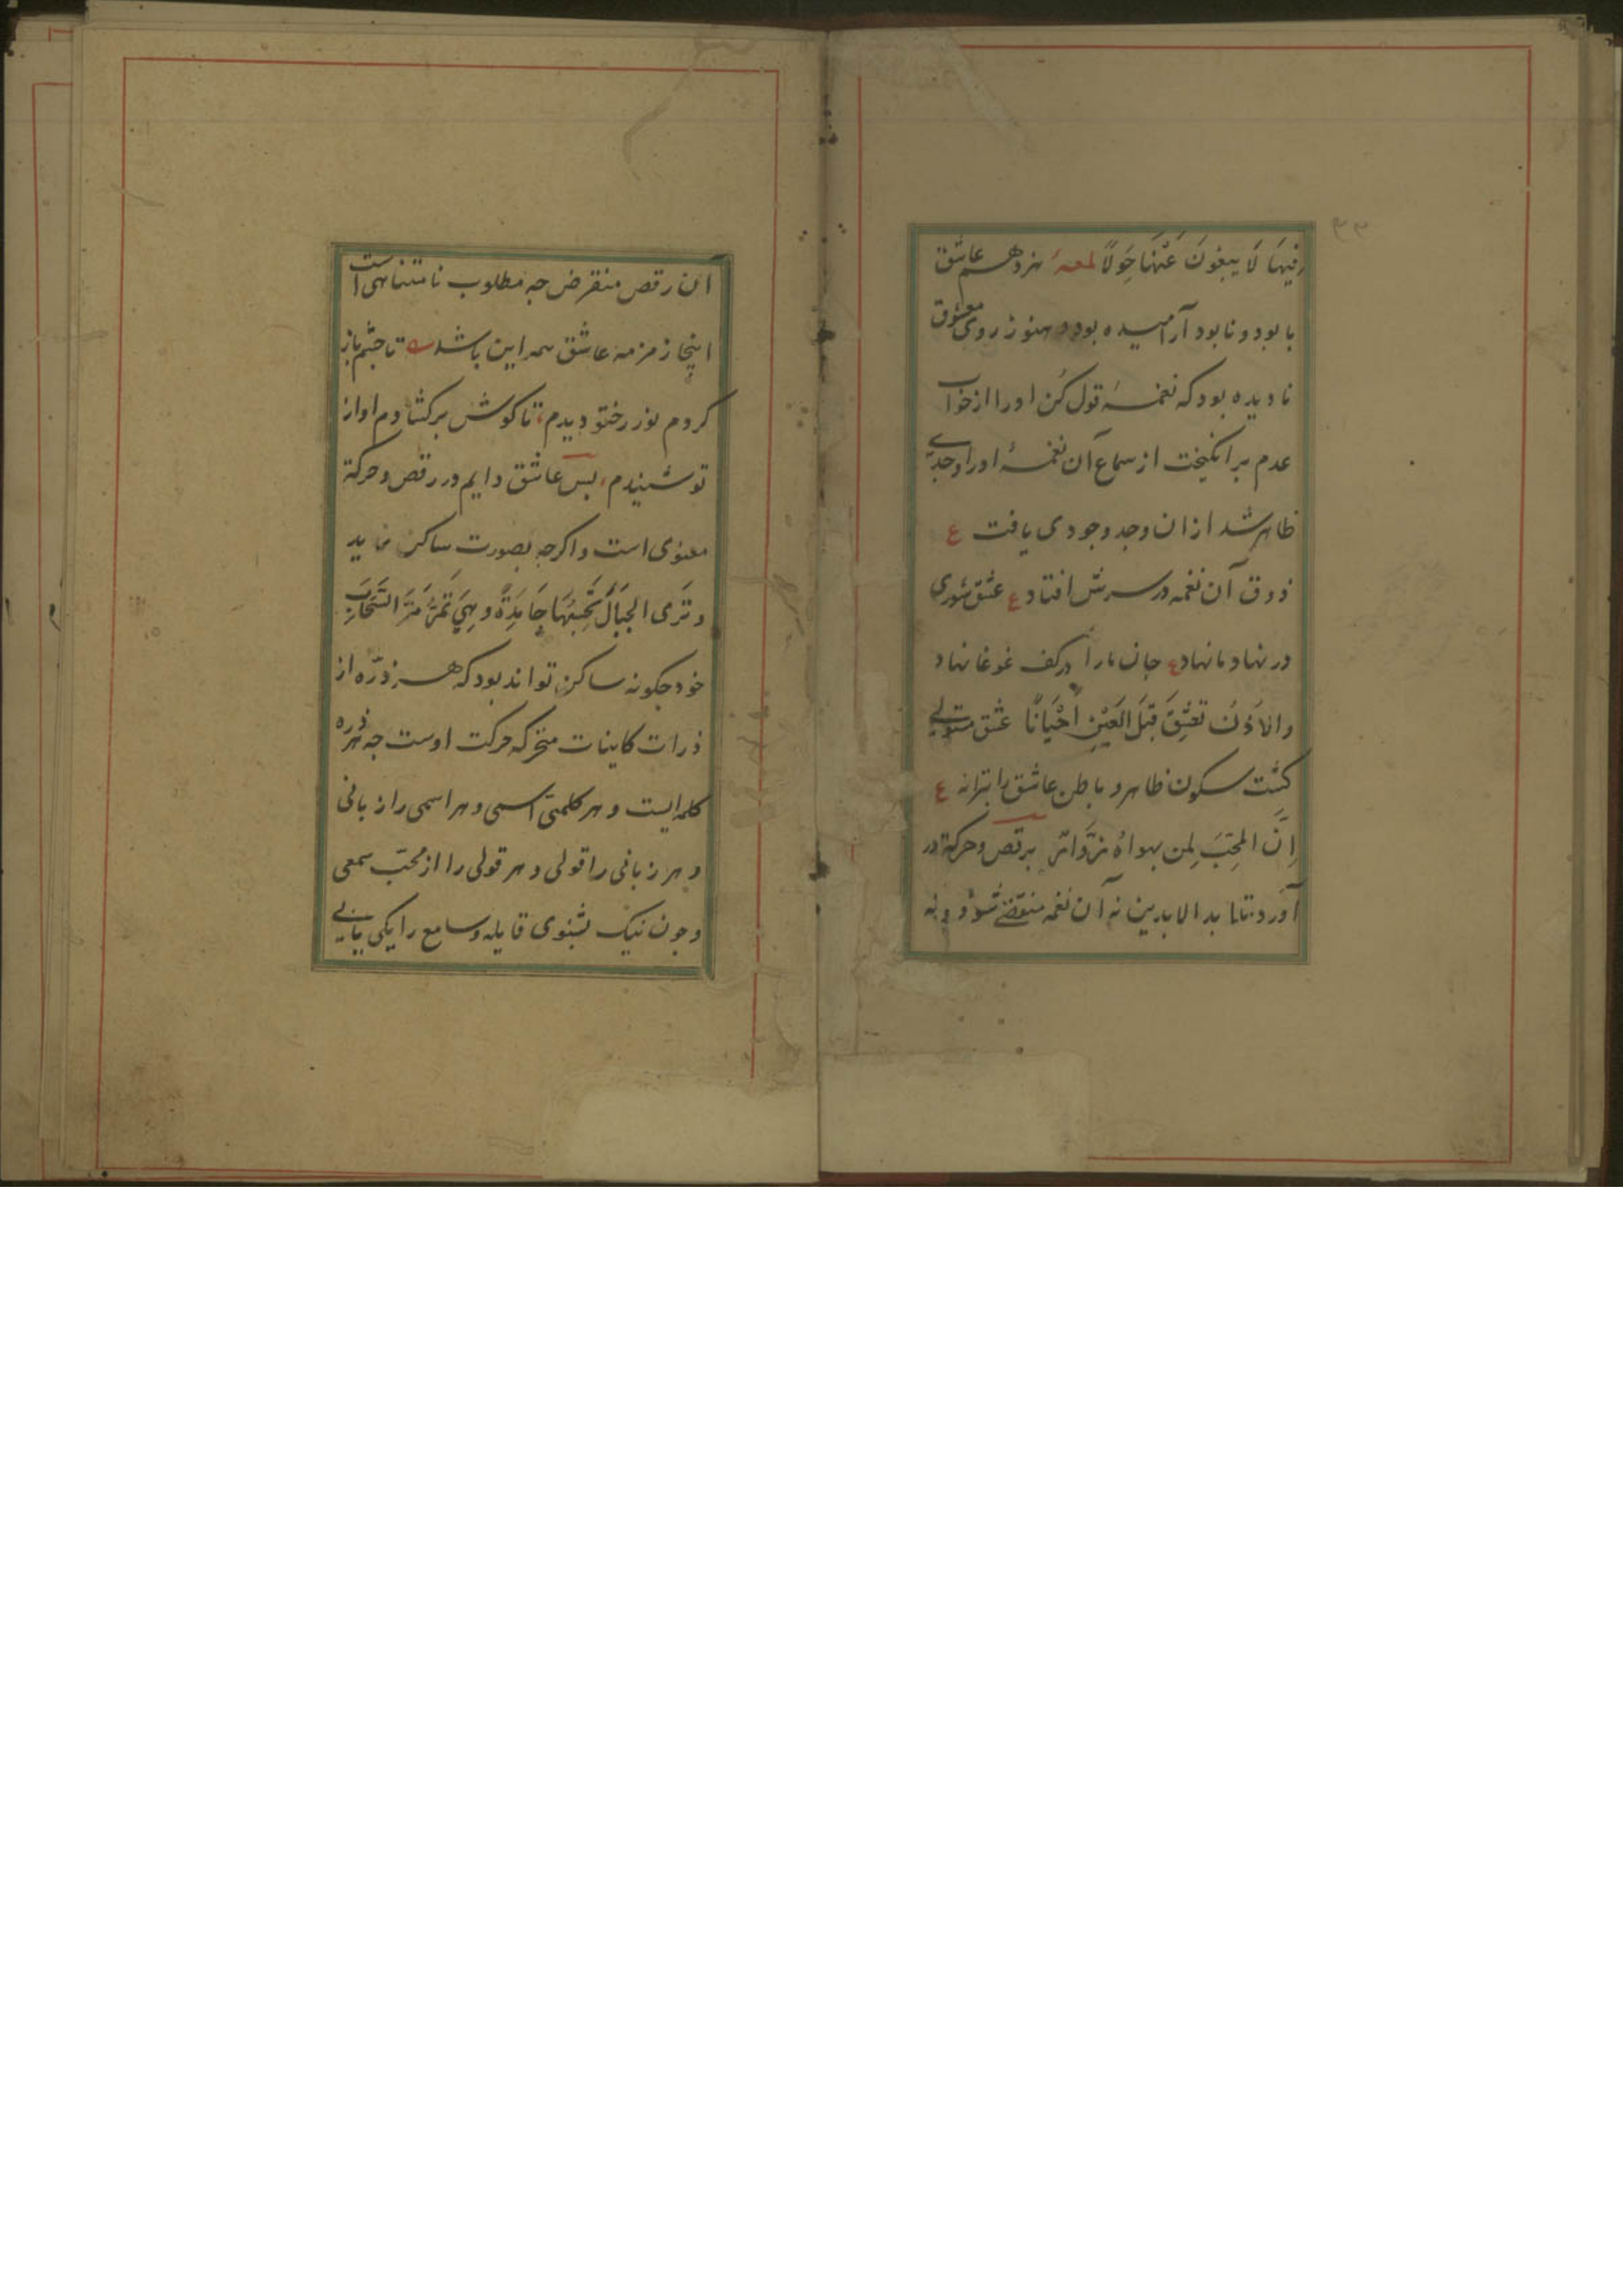 ۳۳
فِیهَا لَا یَبغُونَ عَنْهَا حِوَلًا لمعهٔ هژدهم عاشق
با بود و نابود آرامیده بود و هنوز روی معشوق
نادیده بود که نغمهٔ قول کُن او را از خواب
عدم برانکیخت از سماع آن نغمهٔ او را وجدی
ظاهر شد از ان وجد وجودی یافت ع
ذوق آن نغمه در سرش افتاد ع عشق شوری
در نهاد ما نهاد ع جان ما را در کف غوغا نهاد
والاُذنُ تعشِقُ قَبلَ العَیْنِ اَحْیَانًا عشق مستولی
کشت سکون ظاهر و باطن عاشق را بترانه ع
اِنَّ المُحِبَّ لِمن یهواهُ زوّار برقص و حرکة در
آورد تا ابد الابدین نه آن نغمه منقضی شود و نه
آن رقص منقرض جه مطلوب نامتناهی است
اینجا زمزمه عاشق همه این باشد تا جشم باز
کردم نور رخ تو دیدم، تا کوش برکشادم اواز
تو شنیدم، بس عاشق دایم در رقص و حرکة
معنوی است و اکرجه بصورت ساکن نماید
و تَرَی الجِبَالَ تَحسَبُهَا جَامِدَةً وهِیَ تَمُرُّ مَرَّ السَّحَابِ
خود جکونه ساکن تواند بود که هر ذرّه از
ذرات کاینات متحرکه حرکت اوست جه هر ذره
کلمه ایست و هر کلمتی اسمی و هر اسمی را زبانی
و هر زبانی را قولی و هر قولی را از محبّ سمعی
و جون نیک بشنوی قایل و سامع را یکی یابی